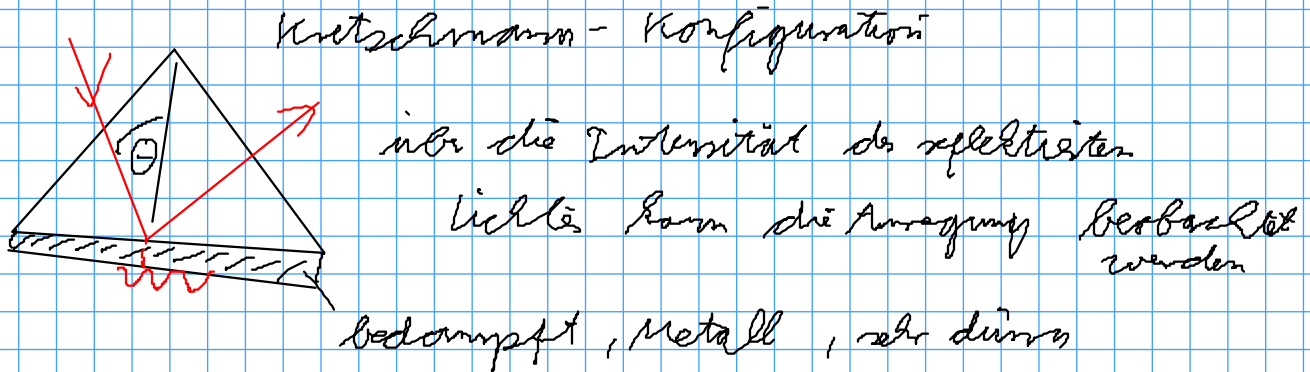 Kretschmann-Konfiguration
Θ
über die Intensität des reflektierten
Lichtes kann die Anregung beobachtet
werden
bedampft, Metall, sehr dünn